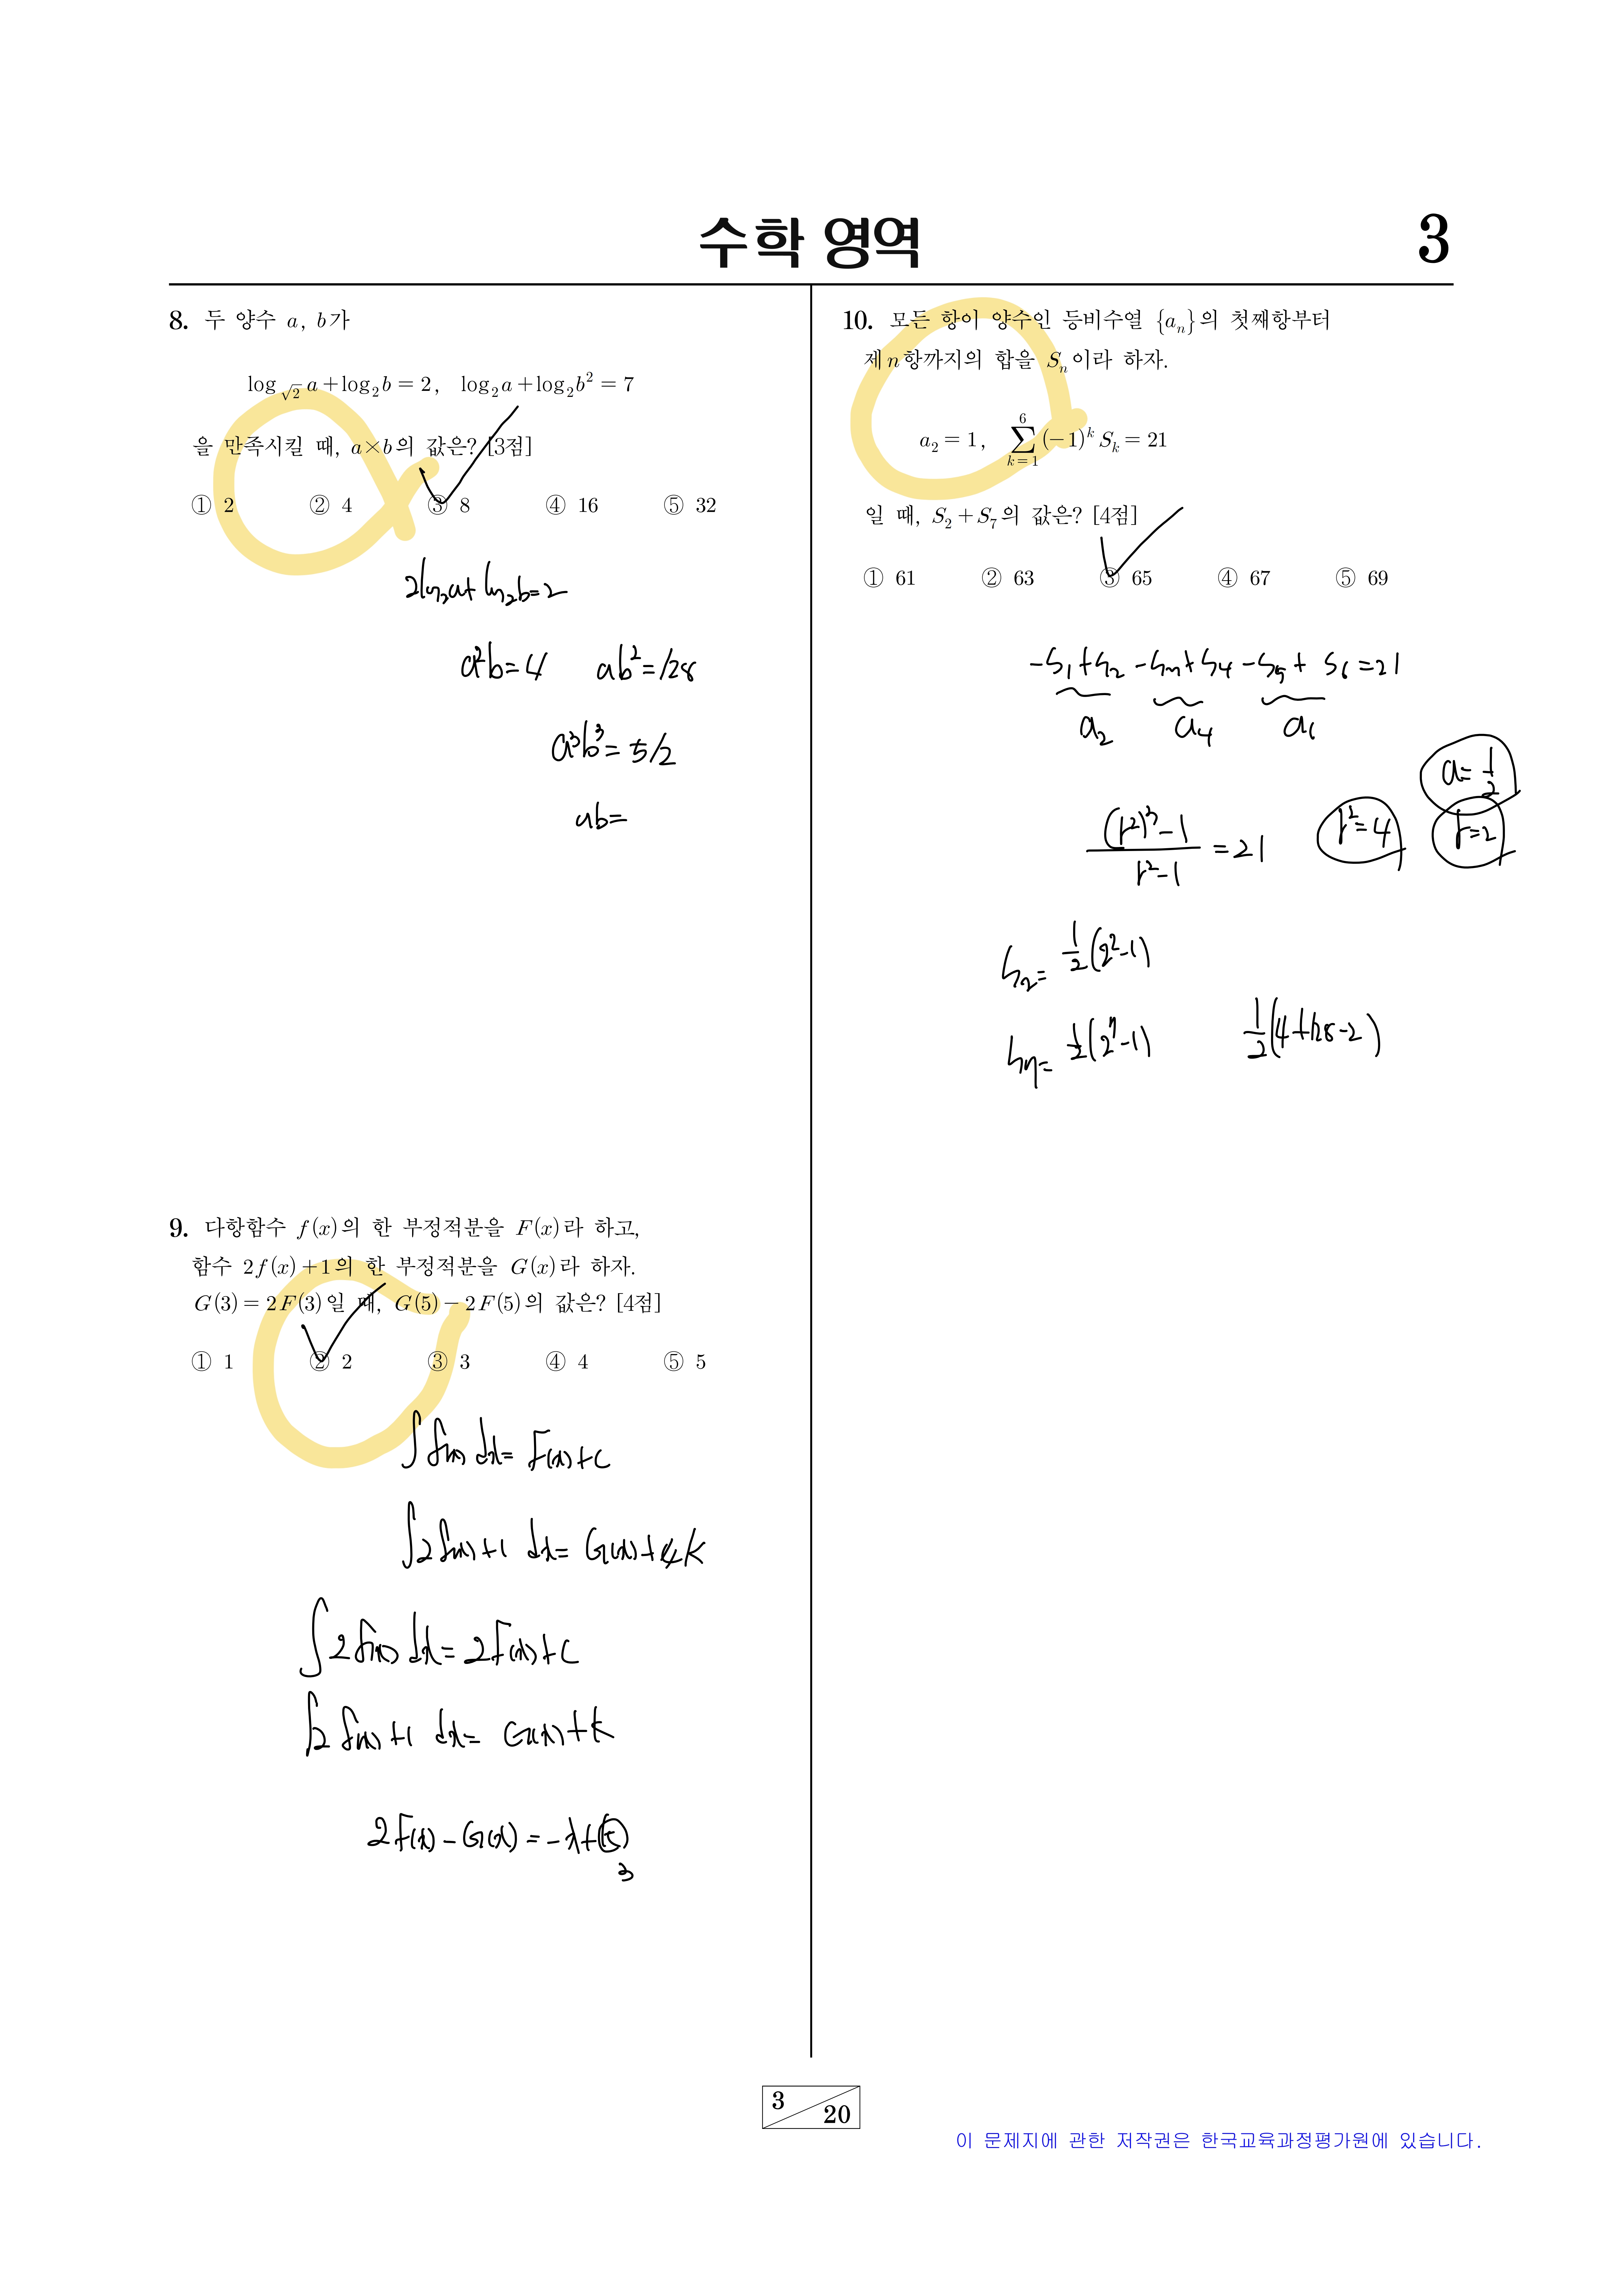 수학 영역
3
8. 두 양수 a, b가
log_√2 a + log_2 b = 2, log_2 a + log_2 b² = 7
을 만족시킬 때, a×b의 값은? [3점]
① 2 ② 4 ③ 8 ④ 16 ⑤ 32
2log_2 a + log_2 b = 2
a²b = 4 ab² = 128
a³b³ = 512
ab =
9. 다항함수 f(x)의 한 부정적분을 F(x)라 하고,
함수 2f(x)+1의 한 부정적분을 G(x)라 하자.
G(3) = 2F(3)일 때, G(5) - 2F(5)의 값은? [4점]
① 1 ② 2 ③ 3 ④ 4 ⑤ 5
∫f(x) dx = F(x)+C
∫2f(x)+1 dx = G(x)+k
∫2f(x) dx = 2F(x)+C
∫2f(x)+1 dx = G(x)+k
2F(x) - G(x) = -x+
3
10. 모든 항이 양수인 등비수열 {a_n}의 첫째항부터
제n항까지의 합을 S_n이라 하자.
a_2 = 1, ∑_{k=1}^{6} (-1)^k S_k = 21
일 때, S_2 + S_7의 값은? [4점]
① 61 ② 63 ③ 65 ④ 67 ⑤ 69
-S_1 + S_2 - S_3 + S_4 - S_5 + S_6 = 21
a_2 a_4 a_6
a = 1/2
((r²)³ - 1)/(r² - 1) = 21 r² = 4 r = 2
S_2 = 1/2(2² - 1)
S_7 = 1/2(2⁷ - 1) 1/2(4+128-2)
3
20
이 문제지에 관한 저작권은 한국교육과정평가원에 있습니다.